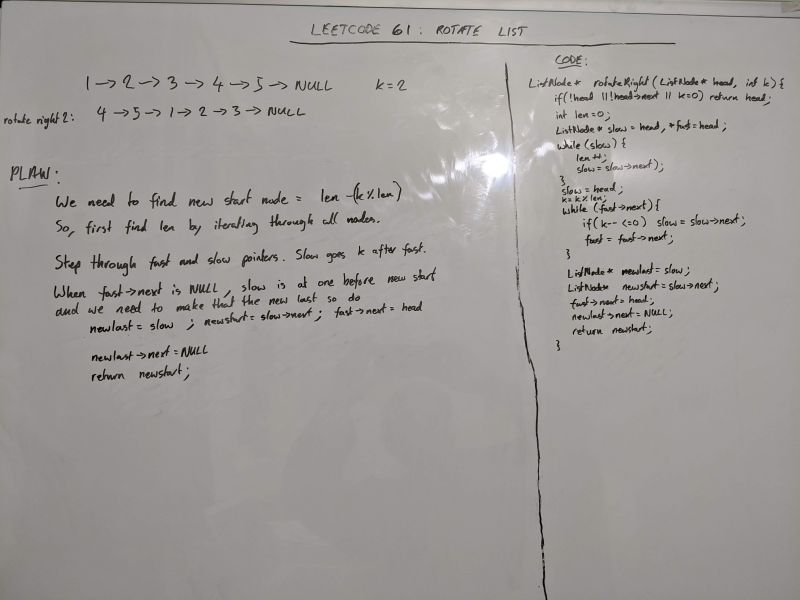 LEETCODE 61: ROTATE LIST
1 → 2 → 3 → 4 → 5 → NULL k = 2
rotate right 2: 4 → 5 → 1 → 2 → 3 → NULL
PLAN:
We need to find new start node = len - (k % len)
So, first find len by iterating through all nodes.
Step through fast and slow pointers. Slow goes k after fast.
When fast→next is NULL, slow is at one before new start
and we need to make that the new last so do
newlast = slow ; newstart = slow→next ; fast→next = head
newlast→next = NULL
return newstart;
CODE:
ListNode* rotateRight (ListNode* head, int k) {
if(!head || !head→next || k=0) return head;
int len=0;
ListNode* slow = head, *fast = head;
while (slow) {
len++;
slow = slow→next);
}
slow = head;
k = k % len;
while (fast→next) {
if(k-- <=0) slow = slow→next;
fast = fast→next;
}
ListNode* newlast = slow;
ListNode* newstart = slow→next;
fast→next = head;
newlast→next = NULL;
return newstart;
}